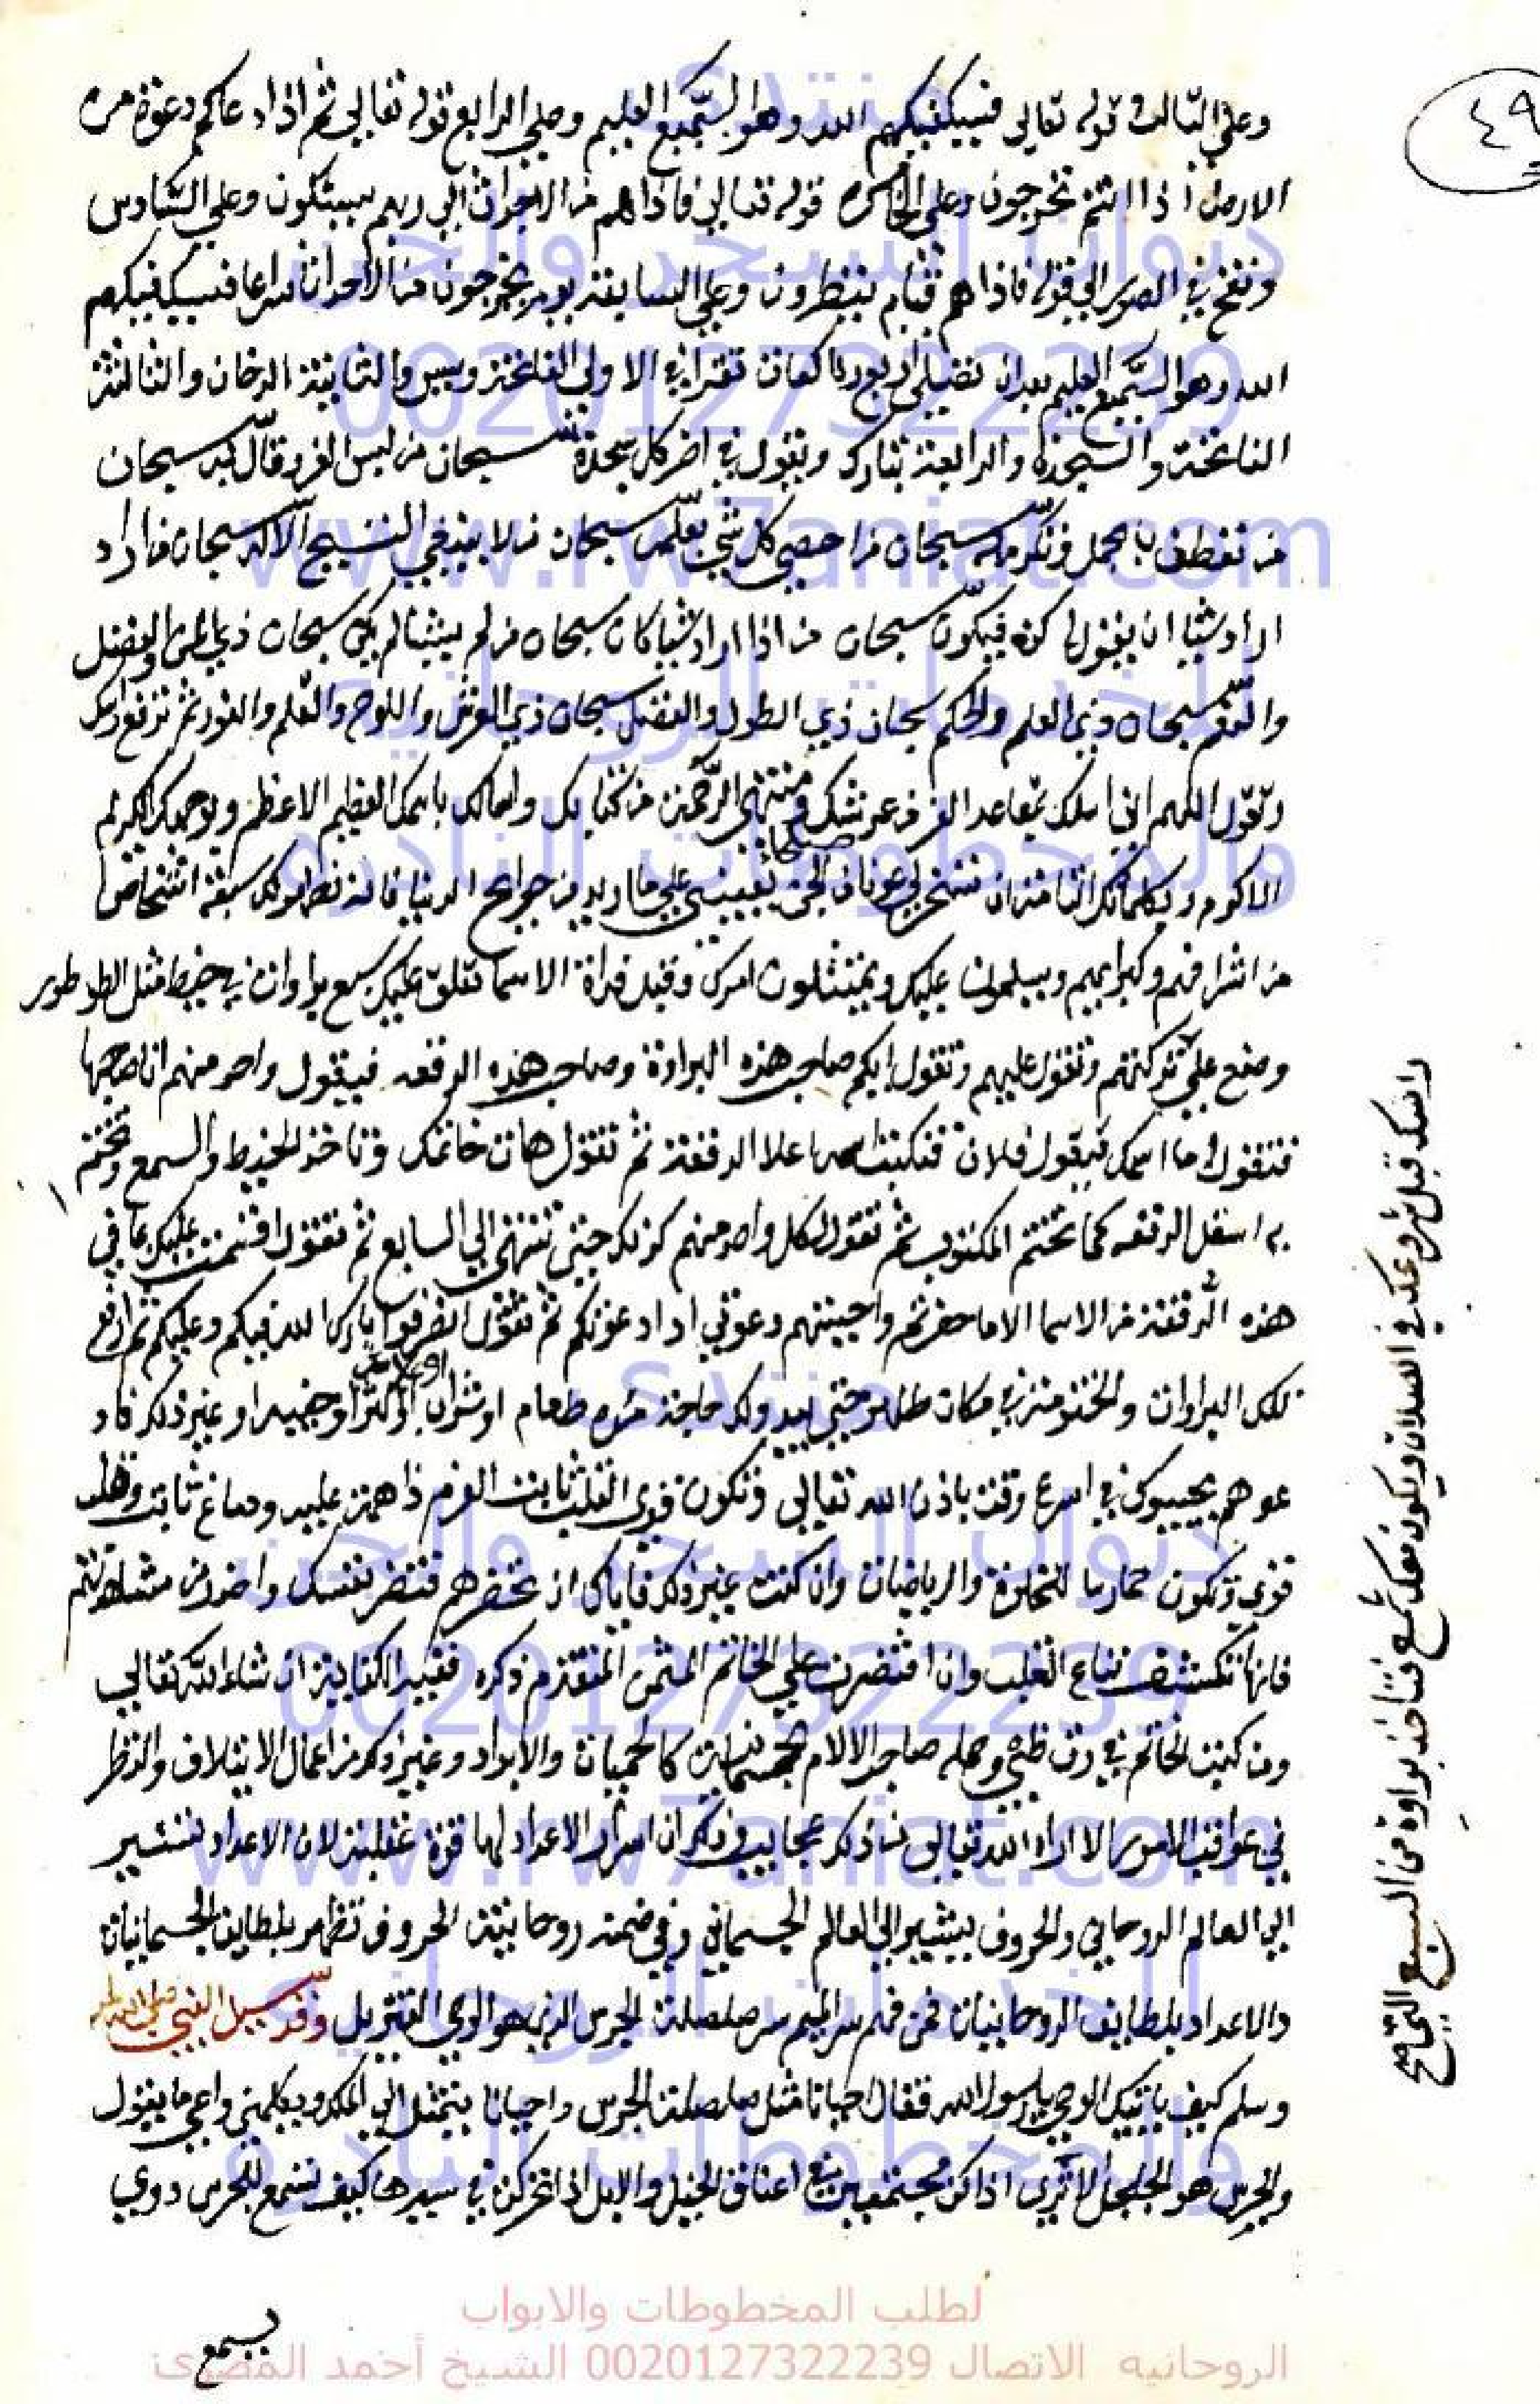 ٤٩
وعلى الثالث قوله تعالى فسيكفيكهم الله وهو السميع العليم وعلي الرابع قوله تعالي ثم اذا دعاكم دعوة من
الارض اذا انتم تخرجون وعلى الخامس قوله تعالي فاذا هم من الاجداث الي ربهم ينسلون وعلي السادس
ونفخ في الصور الي قوله فاذا هم قيام ينظرون وعلي السابعة يوم يخرجون من الاجداث سراعا فسيكفيكهم
الله وهو السميع العليم بعد ان تصلي اربع ركعات تقرا في الاولي الفاتحة ويس والثانية الدخان والثالثة
الفاتحة والسجدة والرابعة تبارك وتقول في اخر كل سجدة سبحان من لبس العز وقال به سبحان
من تعطف بالمجد وتكرم به سبحان من احصي كل شي بعلمه سبحان من لا ينبغي التسبيح الا له سبحان من اذا
اراد شيا ان يقول له كن فيكون سبحان من اذا اراد شيا كان سبحان من لم يشا لم يكن سبحان ذي المن والفضل
والنعم سبحان ذي العلم والحكم سبحان ذي الطول والفضل سبحان ذي العرش واللوح والقلم والنور ثم ترفع راسك
وتقول اللهم اني اسلك بمعاقد العز من عرشك ومنتهى الرحمة من كتابك واسالك باسمك العظيم الاعظم وبوجهك الكريم
الاكرم وبكلماتك التامة ان تسخر لي عونا من الجن صلحا يعينني علي ما اريد من حوايج الدنيا فانه تظهر لك سبعة اشخاص
من اشرافهم وكبرايهم ويسلموا عليك ويمتثلون امرك وقبل قراة الاسما تعلق عليك سبع براوات في خيط مثل الطرطور
وتقول عليهم وتقول ايكم صاحب هذه البراوة وصاحب هذه الرقعه فيقول واحد منهم انا صاحبها
فتقول ما اسمك فيقول فلان فتكتب اسمه اعلا الرقعة ثم تقول هات خاتمك وتاخذ الخيط والشمع وتختم
به اسفل الرقعه كما تختم المكتوب ثم تقول لكل واحد منهم كذلك حتى تنتهى الي السابع ثم تقول اقسمت عليكم بما في
هذه الرقعة من الاسما الا ما حضرتم واجبتم دعوتي اذا دعوتكم ثم تقول انصرفوا بارك الله فيكم وعليكم ثم ارفع
تلك البراوات والختومة في مكان طاهر حتى يبد ولك حاجة من طعام او شراب او غير ذلك فاد
عوهم يجيبوك في اسرع وقت باذن الله تعالي وتكون قوي القلب ثابت العزم ذا همة علية ودماغ ثابت وقلب
قوي وتكون ممارسا للخلوة والرياضات وان كنت غير ذلك فاياك ان تحضرهم فتضر نفسك واحذر من مشاهدتهم
فانها تكشف قناع القلب وان اقتصرت علي الخاتم المثمن المتقدم ذكره ففيه الكفاية ان شاء الله تعالي
ومن كتب الخاتم في رق ظبي وحمله صاحب الالام الجسمانية كالحميات والابراد وغير ذلك من اعمال الايتلاف والنظر
في عواقب الامور الا اراه الله تعالي من ذلك عجايب وذكر ان اسرار الاعداد لها قوة عقلية لان الاعداد تشير
الي العالم الروحاني والحروف يشير الي العالم الجسماني وفي ضمنه روحانية الحروف تظهر بلطايف الجسمانيات
والاعداد بلطايف الروحانيات فمن فهم سر الميم سر صلصلة الجرس الذي هو الوحي التنزيل وقد سيل النبي صلى الله عليه
وسلم كيف ياتيك الوحي يا رسول الله فقال احيانا مثل صلصلة الجرس واحيانا يتمثل لي الملك ويكلمني واعي ما يقول
والجرس هو الجلجل الا ترى اذا كن مجتمعين في اعناق الخيل والابل اذا تحركن في سيرها كيف تسمع للجرس دوي
يسمع
راسك قبل شروعك في الصلاة ويكون معك شمع فتاخذ براوة من السبع
لطلب المخطوطات والابواب
الروحانيه الاتصال 00201273222239 الشيخ أحمد المصرى
منتدى
ديوان السحر والجن
00201273222239
www.rw7aniat.com
للخدمات الروحانيه
والمخطوطات النادره
منتدى
ديوان السحر والجن
00201273222239
www.rw7aniat.com
للخدمات الروحانيه
والمخطوطات النادره